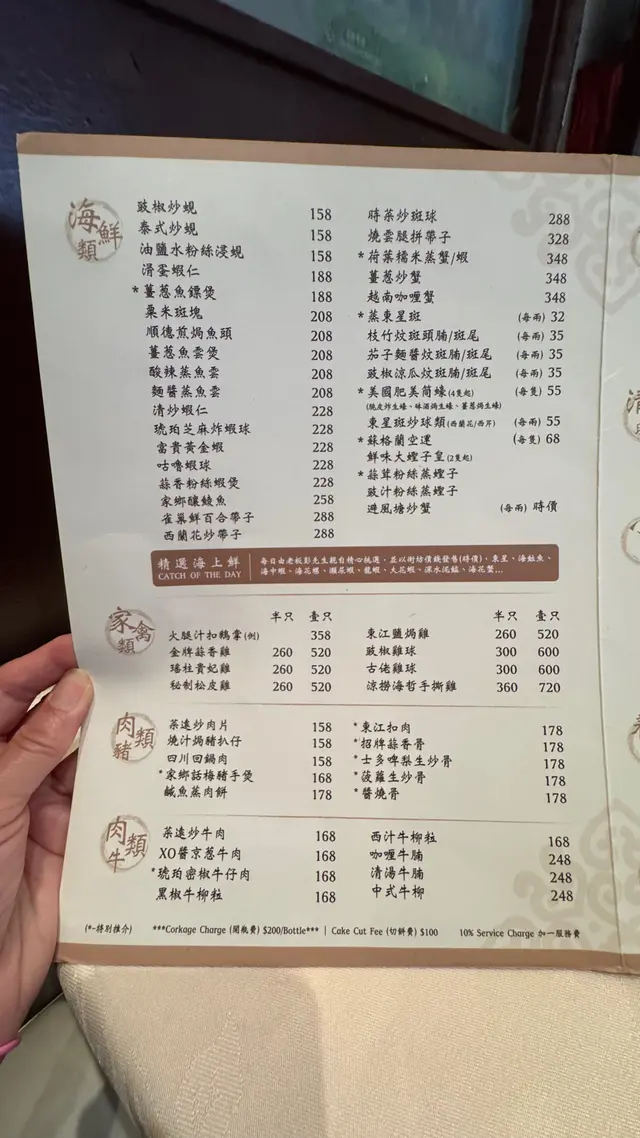 海鮮類
豉椒炒蜆 158
泰式炒蜆 158
油鹽水粉絲浸蜆 158
滑蛋蝦仁 188
*薑葱魚鏢煲 188
粟米斑塊 208
順德煎焗魚頭 208
薑葱魚雲煲 208
酸辣蒸魚雲 208
麵醬蒸魚雲 208
清炒蝦仁 228
琥珀芝麻炸蝦球 228
富貴黃金蝦 228
咕嚕蝦球 228
蒜香粉絲蝦煲 228
家鄉釀鯪魚 258
雀巢鮮百合帶子 288
西蘭花炒帶子 288
時菜炒斑球 288
燒雲腿拼帶子 328
*荷葉糯米蒸蟹/蝦 348
薑葱炒蟹 348
越南咖喱蟹 348
*蒸東星斑 (每兩) 32
枝竹炆斑頭腩/斑尾 (每兩) 35
茄子麵醬炆斑腩/斑尾 (每兩) 35
豉椒涼瓜炆斑腩/斑尾 (每兩) 35
*美國肥美筒蠔(4隻起) (每隻) 55
(脆皮炸生蠔、味酒焗生蠔、薑葱焗生蠔)
東星斑炒球類(西蘭花/西芹) (每兩) 55
*蘇格蘭空運 (每隻) 68
鮮味大蟶子皇(2隻起)
*蒜茸粉絲蒸蟶子
豉汁粉絲蒸蟶子
避風塘炒蟹 (每兩) 時價
精選海上鮮
CATCH OF THE DAY
每日由老板彭先生親自精心挑選，並以街坊價錢發售(時價)，東星、海鮭魚、
海中蝦、海花螺、瀨尿蝦、龍蝦、大花蝦、深水泥鯭、海花蟹...
家禽類
半隻 壹隻
火腿汁扣鵝掌(例) 358
金牌蒜香雞 260 520
瑤柱貴妃雞 260 520
秘制松皮雞 260 520
半隻 壹隻
東江鹽焗雞 260 520
豉椒雞球 300 600
古佬雞球 300 600
涼撈海哲手撕雞 360 720
豬肉類
菜遠炒肉片 158
燒汁焗豬扒仔 158
四川回鍋肉 158
*家鄉話梅豬手煲 168
鹹魚蒸肉餅 178
*東江扣肉 178
*招牌蒜香骨 178
*士多啤梨生炒骨 178
*菠蘿生炒骨 178
*醬燒骨 178
牛肉類
菜遠炒牛肉 168
XO醬京葱牛肉 168
*琥珀密椒牛仔肉 168
黑椒牛柳粒 168
西汁牛柳粒 168
咖喱牛腩 248
清湯牛腩 248
中式牛柳 248
(*-特別推介) ***Corkage Charge (開瓶費) $200/Bottle*** | Cake Cut Fee (切餅費) $100 10% Service Charge 加一服務費